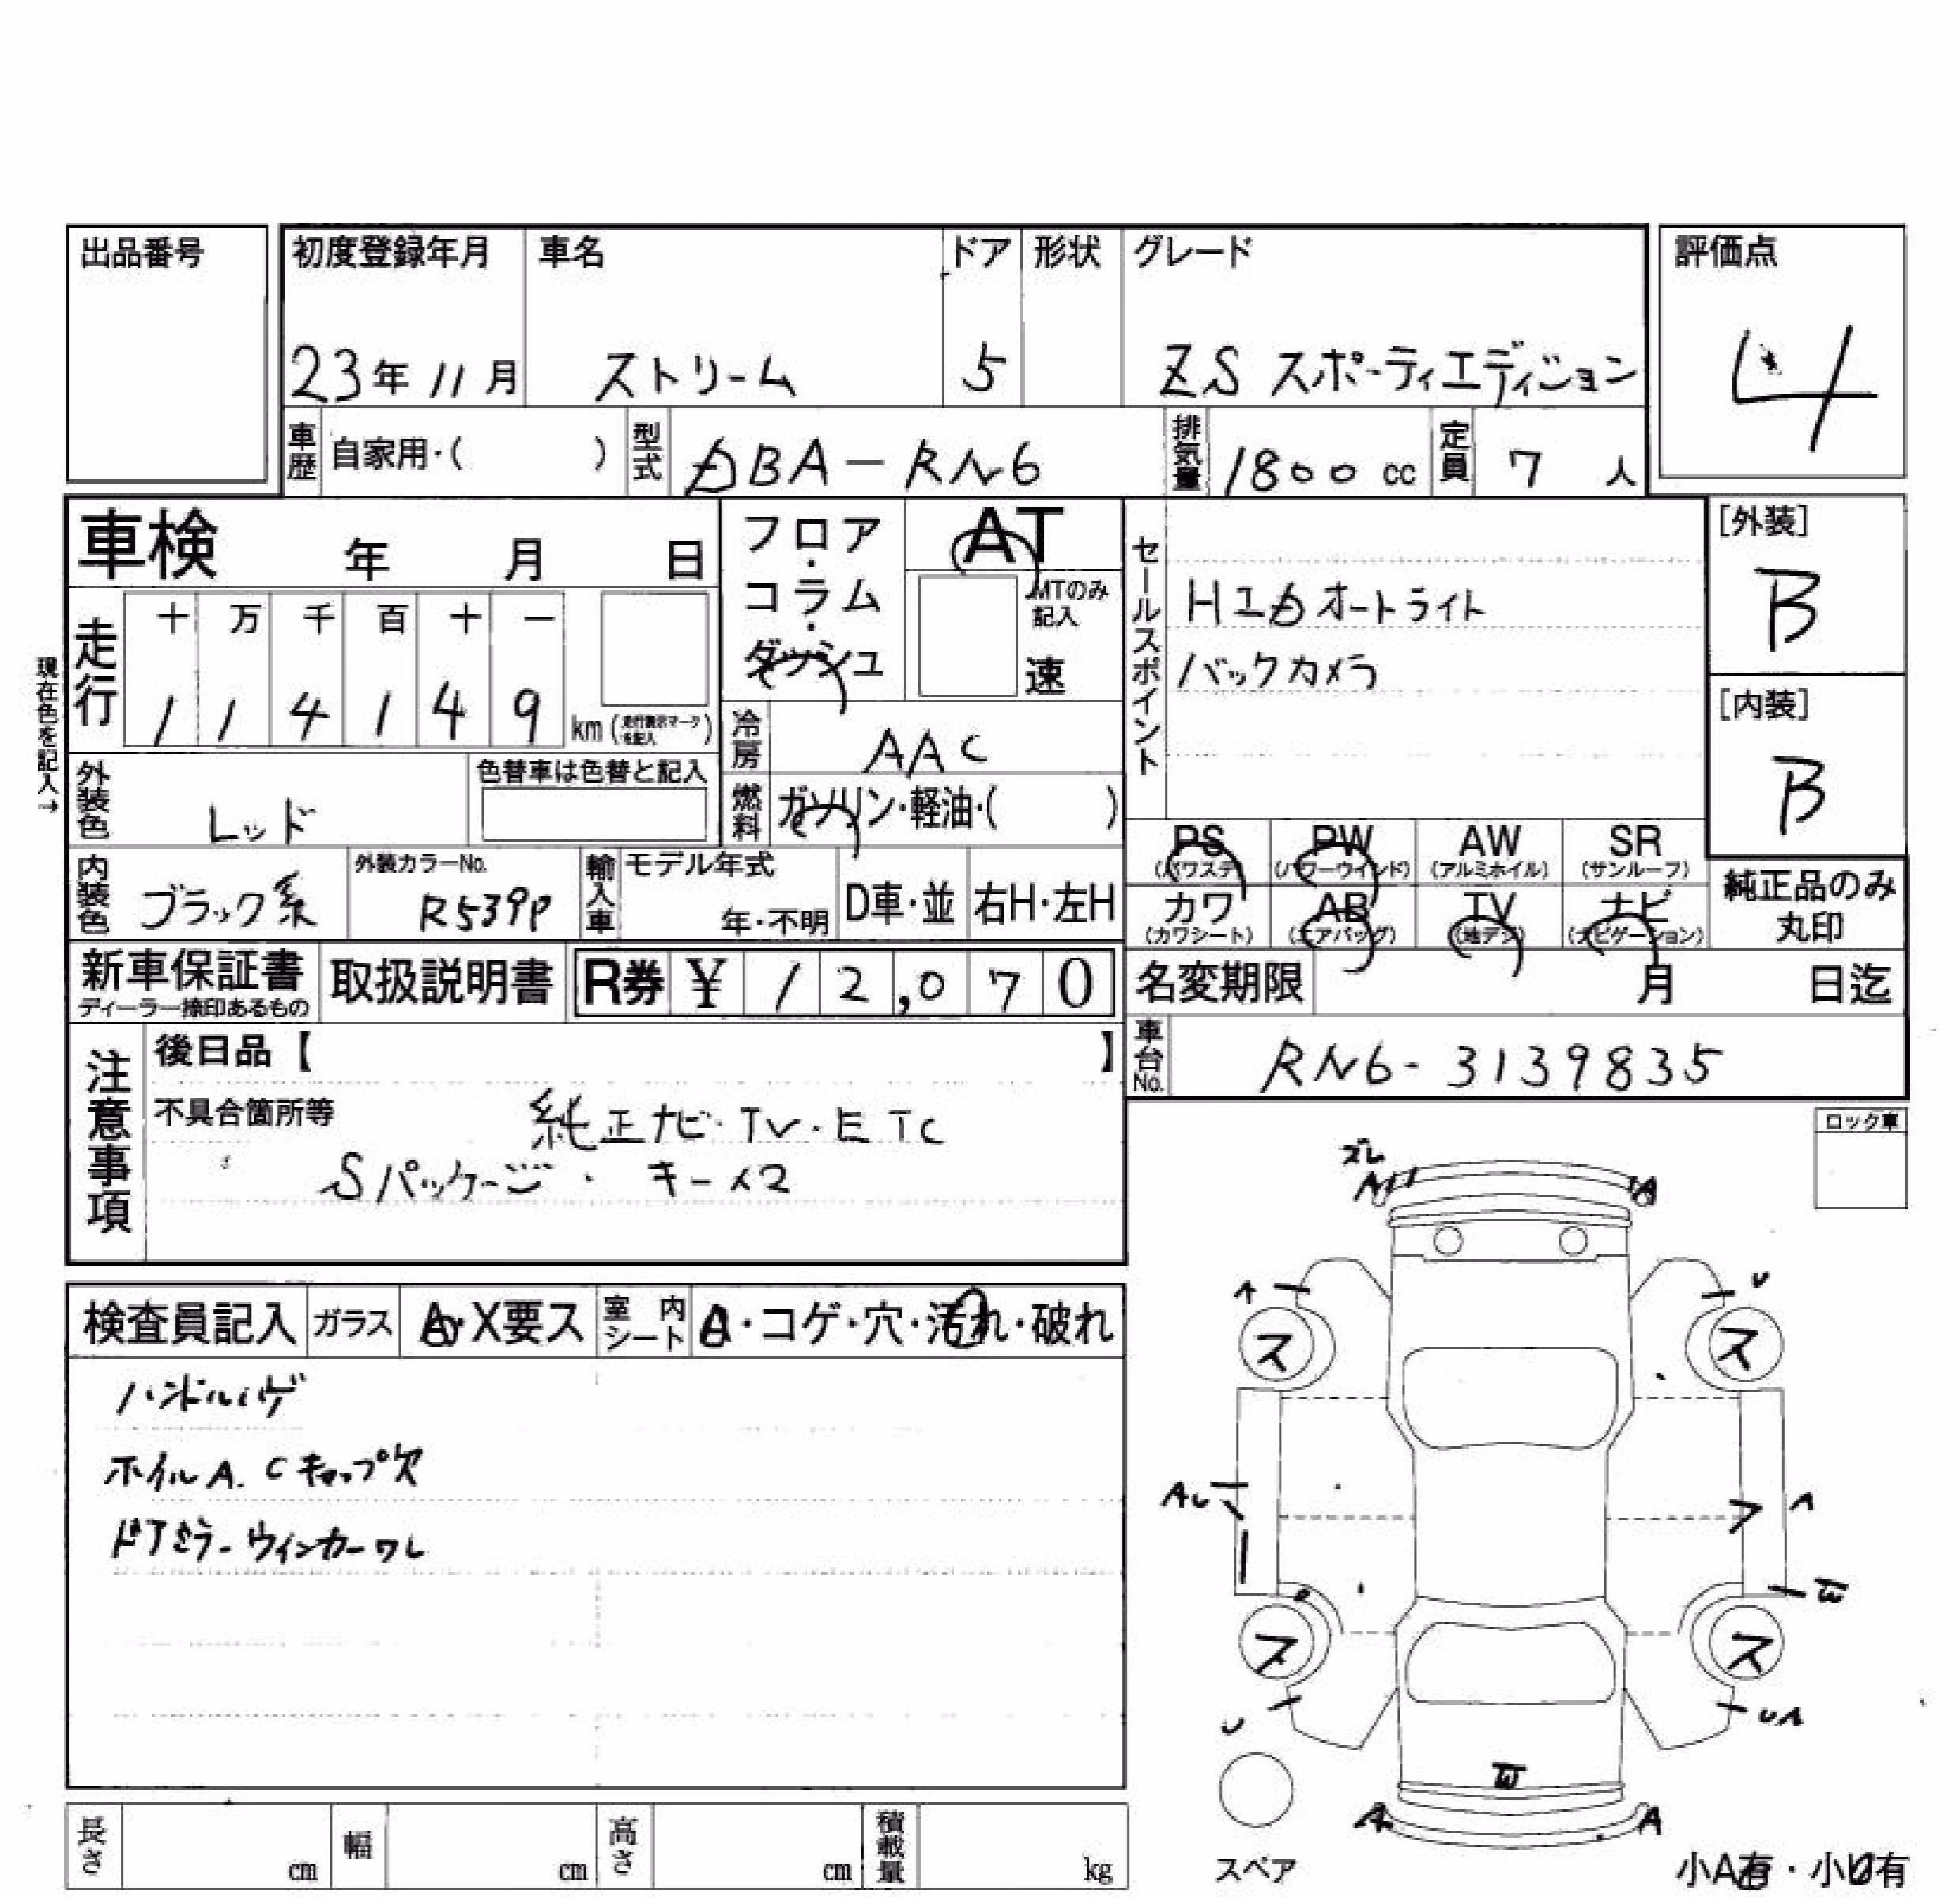 出品番号
初度登録年月 車名 ドア 形状 グレード 評価点
23年 11月 ストリーム 5 ZS スポーティエディション 4
車歴 自家用・( ) 型式 DBA-RN6 排気量 1800 cc 定員 7 人
車検 年 月 日
フロア・コラム・ダッシュ
AT
MTのみ記入
速
セールスポイント
HIDオートライト
バックカメラ
[外装]
B
[内装]
B
現在色を記入→
走行 十 万 千 百 十 一
1 1 4 1 4 9 km (走行表示マークを記入)
冷房 AAC
外装色 レッド 色替車は色替と記入
燃料 ガソリン・軽油・( )
PS (パワステ) PW (パワーウインド) AW (アルミホイル) SR (サンルーフ)
カワ (カワシート) AB (エアバッグ) TV (地デジ) ナビ (ナビゲーション)
純正品のみ丸印
内装色 ブラック系 外装カラーNo. R539P 輸入車 モデル年式 年・不明 D車・並 右H・左H
新車保証書 ディーラー捺印あるもの 取扱説明書 R券 ¥ 12,070
名変期限 月 日迄
車台No. RN6-3139835
注意事項
後日品【 】
不具合箇所等 純正ナビ・TV・ETC
Sパッケージ・キー×2
ロック車
検査員記入 ガラス A・X要ス 室内シート A・コゲ・穴・汚れ・破れ
ハンドルハゲ
ホイルA.Cキャップ欠
ドアミラーウィンカーワレ
ズレ
A A
A U
ス ス
AU A
W
ス ス
U UA
W
A A
スペア
小A有・小U有
長さ cm 幅 cm 高さ cm 積載量 kg